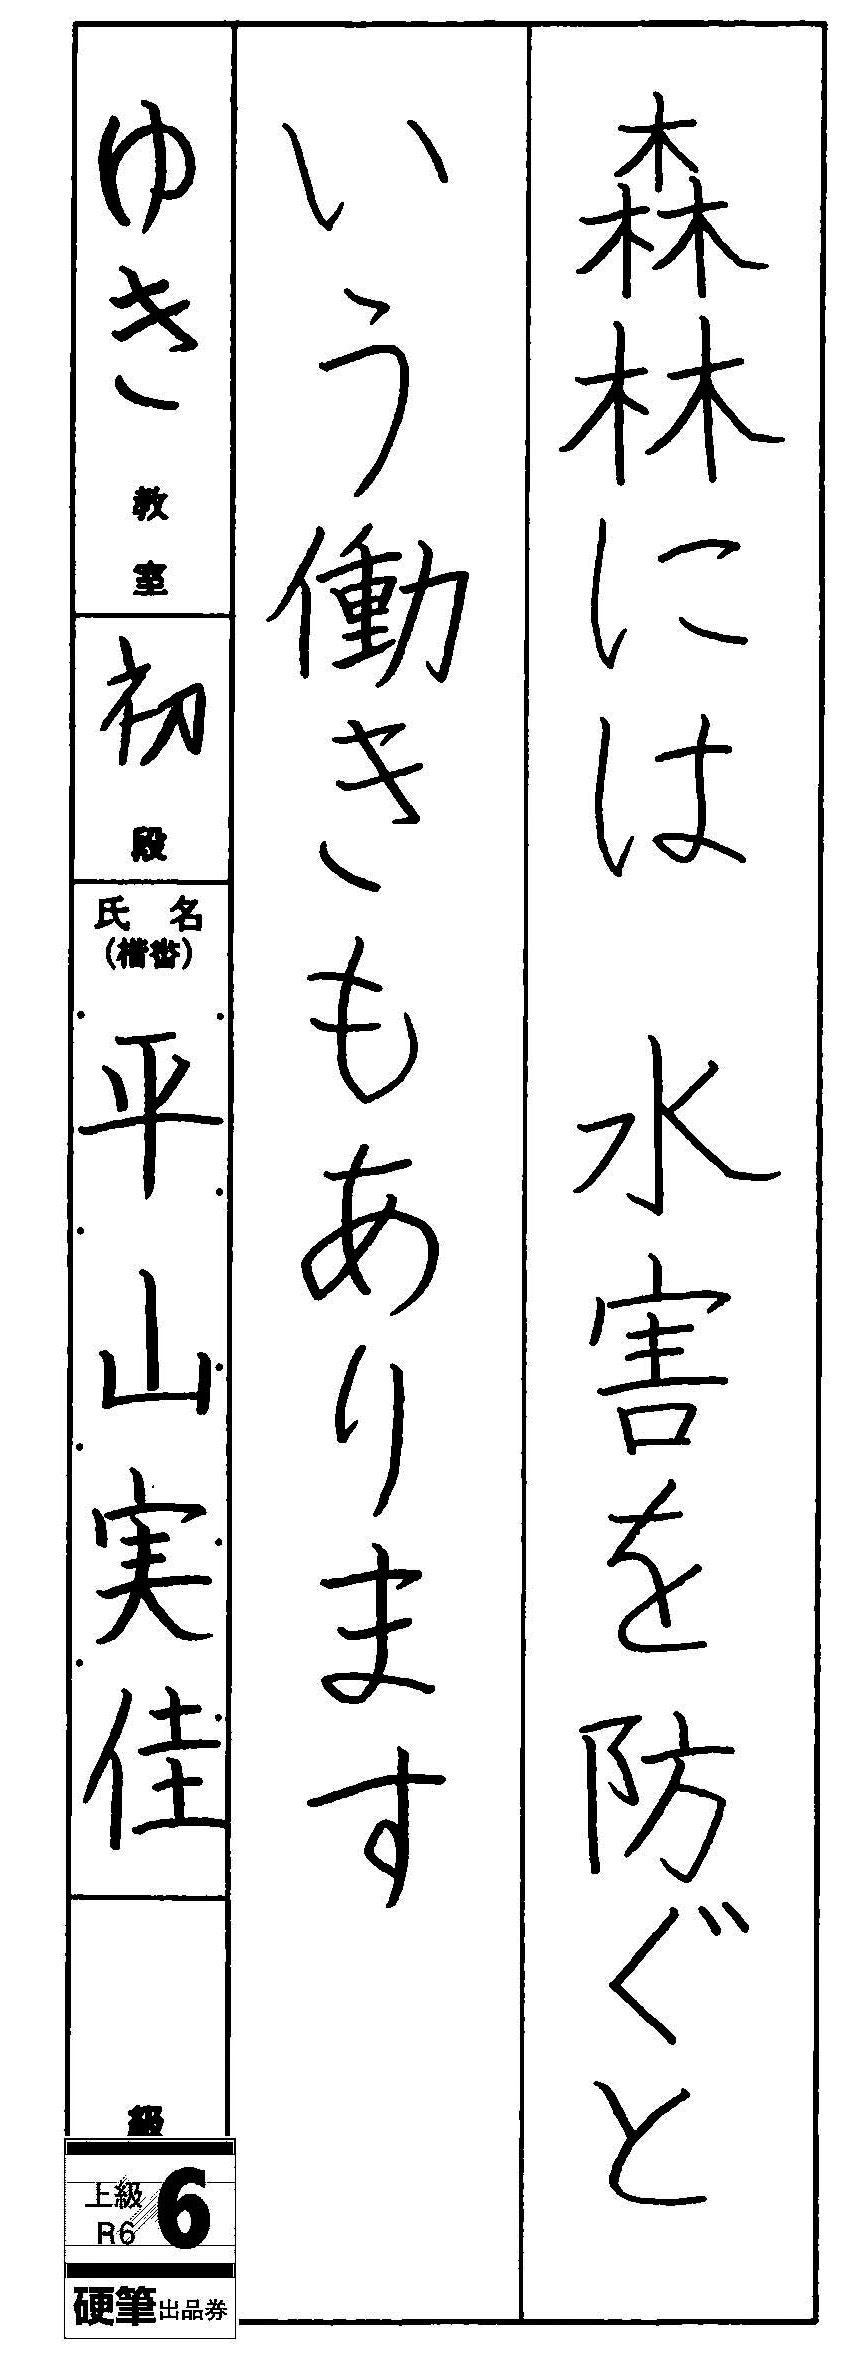 森林には　水害を防ぐと
いう働きもあります
ゆき教室
初段
氏名
(楷書)
平山実佳
級
上級 6
R6
硬筆出品券